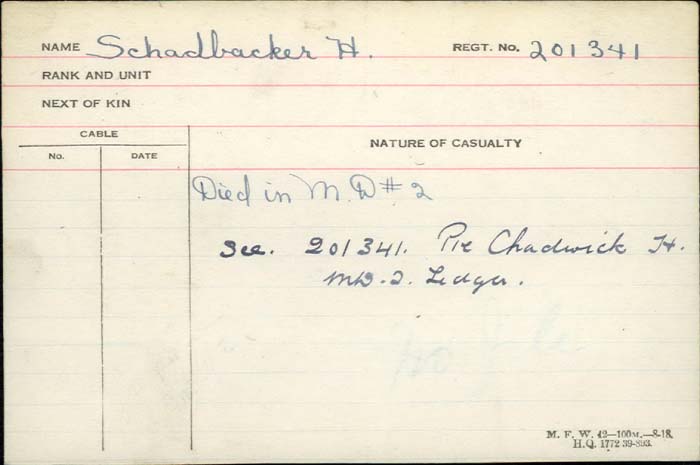 NAME Schadbacker H. REGT. No. 201341
RANK AND UNIT
NEXT OF KIN
CABLE
NATURE OF CASUALTY
No. DATE
Died in M.D # 2
See. 201341. Pte Chadwick H.
MD. 2. Ledger.
M. F. W. 42—100M.—8-18.
H.Q. 1772-39-893.